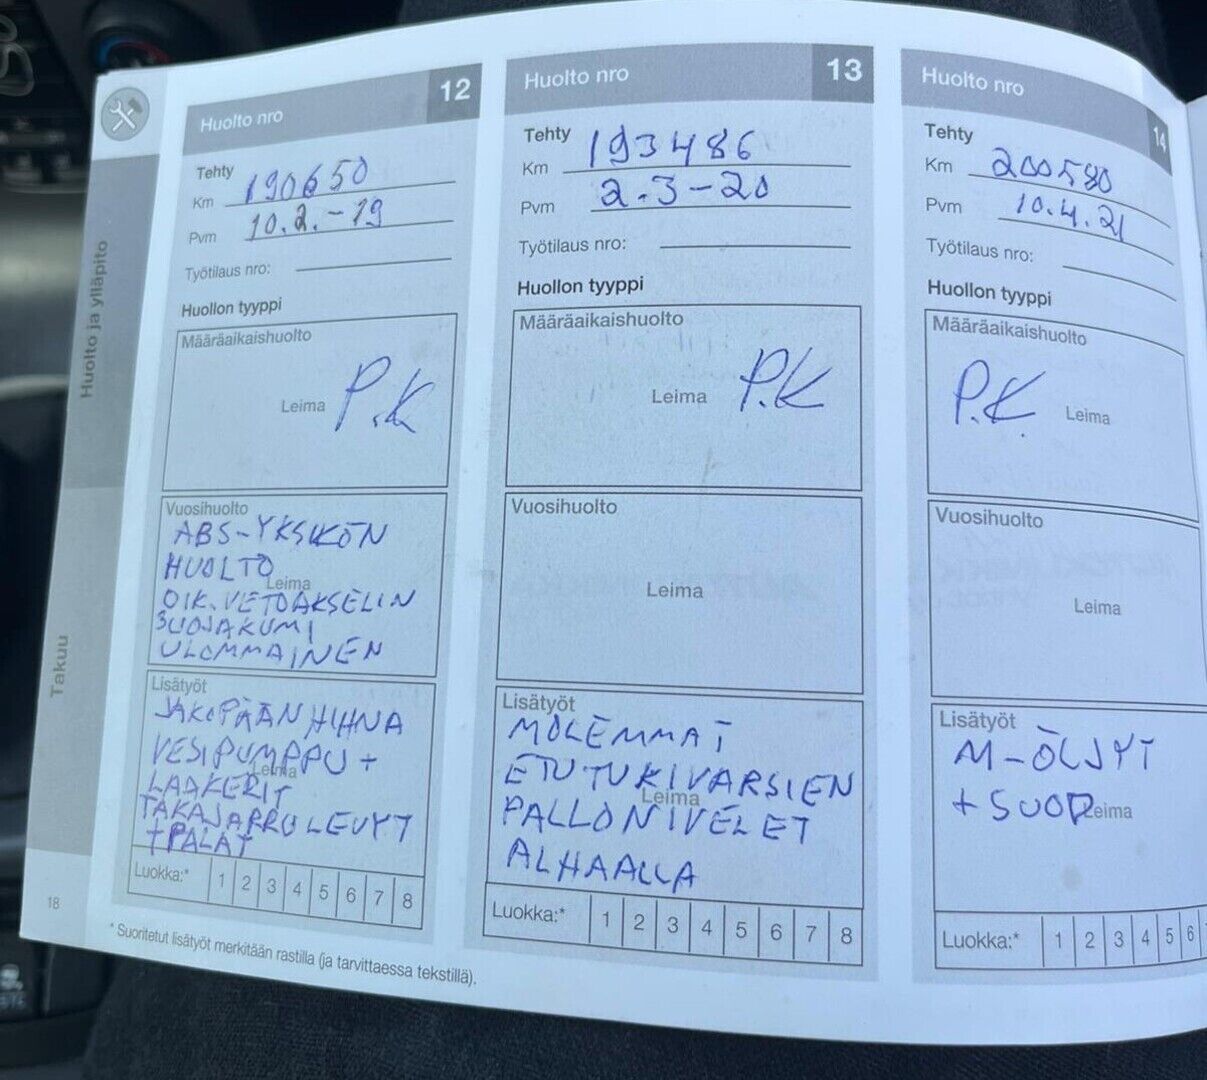 Huolto ja ylläpito
Takuu
18
Huolto nro 12
Tehty
Km 190650
Pvm 10.2.-19
Työtilaus nro:
Huollon tyyppi
Määräaikaishuolto
Leima P.K
Vuosihuolto
ABS-YKSIKÖN
HUOLTO
Leima
OIK. VETOAKSELIN
SUOJAKUMI
ULOMMAINEN
Lisätyöt
JAKOPÄÄN HIHNA
VESIPUMPPU +
Leima
LAAKERIT
TAKAJARRULEVYT
+PALAT
Luokka:* 1 2 3 4 5 6 7 8
Huolto nro 13
Tehty
Km 193486
Pvm 2.3-20
Työtilaus nro:
Huollon tyyppi
Määräaikaishuolto
Leima P.K
Vuosihuolto
Leima
Lisätyöt
MOLEMMAT
ETUTUKIVARSIEN
Leima
PALLONIVELET
ALHAALLA
Luokka:* 1 2 3 4 5 6 7 8
Huolto nro 14
Tehty
Km 200580
Pvm 10.4.21
Työtilaus nro:
Huollon tyyppi
Määräaikaishuolto
P.K. Leima
Vuosihuolto
Leima
Lisätyöt
M-ÖLJYT
+ SUOD
Leima
Luokka:* 1 2 3 4 5 6
* Suoritetut lisätyöt merkitään rastilla (ja tarvittaessa tekstillä).